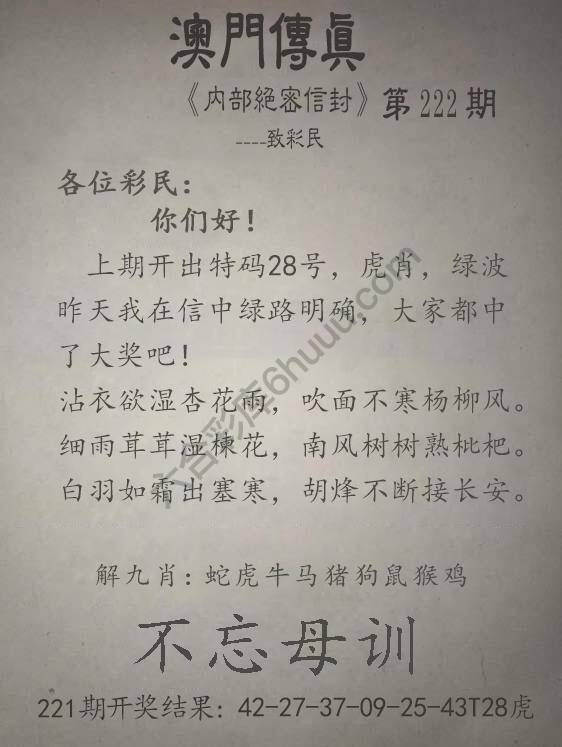 澳門傳真
《内部絕密信封》第222期
----致彩民
各位彩民：
你们好！
上期开出特码28号，虎肖，绿波
昨天我在信中绿路明确，大家都中
了大奖吧！
沾衣欲湿杏花雨，吹面不寒杨柳风。
细雨茸茸湿楝花，南风树树熟枇杷。
白羽如霜出塞寒，胡烽不断接长安。
解九肖：蛇虎牛马猪狗鼠猴鸡
不忘母训
221期开奖结果：42-27-37-09-25-43T28虎
六合彩库6huuu.com